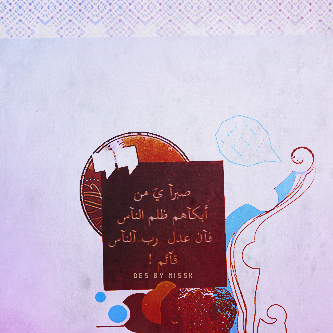 صبرآ يَ من
أبكآهم ظلم النآس
فآن عدل رب آلنآس
قآئم !
DES BY MISSK